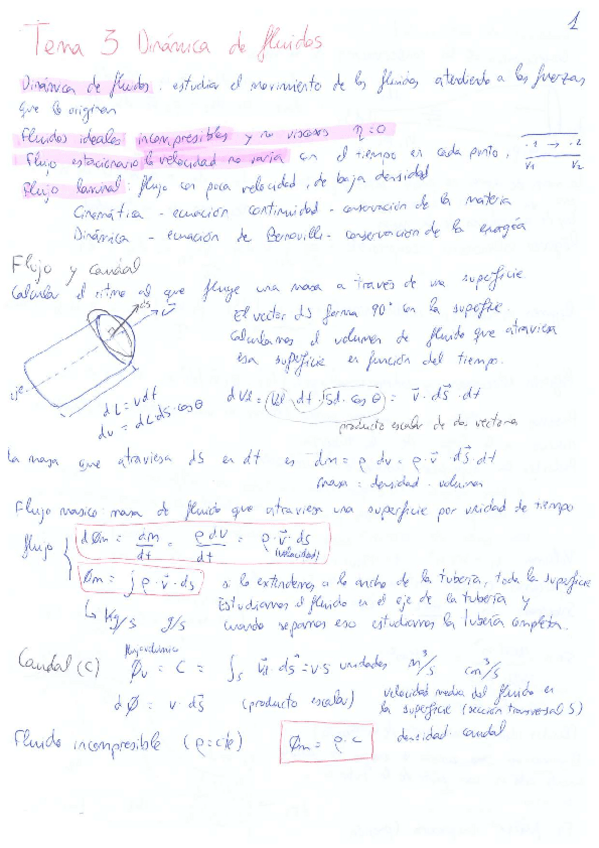 1
Tema 3 Dinámica de fluidos
Dinámica de fluidos: estudiar el movimiento de los fluidos atendiendo a las fuerzas
que lo originan
Fluidos ideales: incompresibles y no viscosos η=0
Flujo estacionario la velocidad no varía con el tiempo en cada punto, ·1 → ·2
V1 V2
Flujo laminar: flujo con poca velocidad, de baja densidad
Cinemática - ecuación continuidad - conservación de la materia
Dinámica - ecuación de Bernoulli - conservación de la energía
Flujo y caudal
Calcular el ritmo al que fluye una masa a través de una superficie
El vector ds forma 90° con la superficie.
Calculamos el volumen de fluido que atraviesa
esa superficie en función del tiempo.
ds v
eje
dL = vdt
dv = dL dS·cosθ
dVs = |v| dt · |Sd · cosθ| = v · ds · dt
producto escalar de dos vectores
la masa que atraviesa dS en dt es dm = ρ dv = ρ · v · ds · dt
masa = densidad · volumen
Flujo masico: masa de fluido que atraviesa una superficie por unidad de tiempo
flujo dØm = dm/dt = ρ dv/dt = ρ · v · ds
(velocidad)
Øm = ∫ ρ · v · ds si lo extendemos a lo ancho de la tubería, toda la superficie
Estudiamos el fluido en el eje de la tubería y
↳ Kg/s g/s cuando sepamos eso estudiamos la tubería completa.
flujo volumico
Caudal (C) Øv = C = ∫s v · ds = v·s unidades m³/s cm³/s
dØ = v · ds (producto escalar) velocidad media del fluido en
la superficie (sección transversal S)
Fluido incompresible (ρ = cte) Øm = ρ · c densidad · caudal